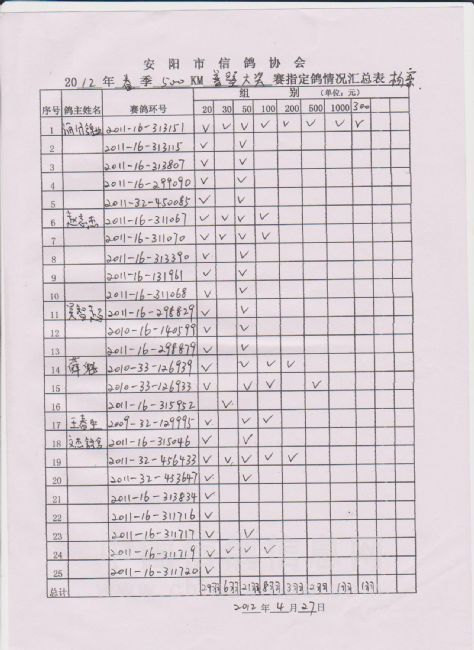 安阳市信鸽协会
2012年春季500KM 大奖赛指定鸽情况汇总表
组 别 (单位：元)
序号 鸽主姓名 赛鸽环号 20 30 50 100 200 500 1000 300
1 2011-16-313151 ✓ ✓ ✓ ✓ ✓ ✓ ✓ ✓
2 2011-16-313115 ✓ ✓
3 2011-16-313807 ✓ ✓
4 2011-16-299090 ✓ ✓
5 2011-32-450085 ✓ ✓
6 赵志杰 2011-16-311067 ✓ ✓ ✓ ✓
7 2011-16-311070 ✓ ✓ ✓ ✓
8 2011-16-313390 ✓ ✓
9 2011-16-131961 ✓ ✓
10 2011-16-311068 ✓ ✓
11 2011-16-298829 ✓ ✓
12 2010-16-140599 ✓ ✓
13 2011-16-298879 ✓ ✓
14 2010-33-126939 ✓ ✓ ✓ ✓
15 2010-33-126933 ✓ ✓ ✓ ✓
16 2011-16-315952 ✓
17 王春生 2009-32-129995 ✓ ✓ ✓
18 2011-16-315046 ✓ ✓
19 2011-32-456433 ✓ ✓ ✓ ✓ ✓
20 2011-32-453647 ✓ ✓
21 2011-16-313834 ✓
22 2011-16-311716 ✓
23 2011-16-311717 ✓ ✓
24 2011-16-311719 ✓ ✓ ✓ ✓
25 2011-16-311720 ✓
总计 24羽 6羽 21羽 8羽 3羽 2羽 1羽 1羽
2012年4月27日